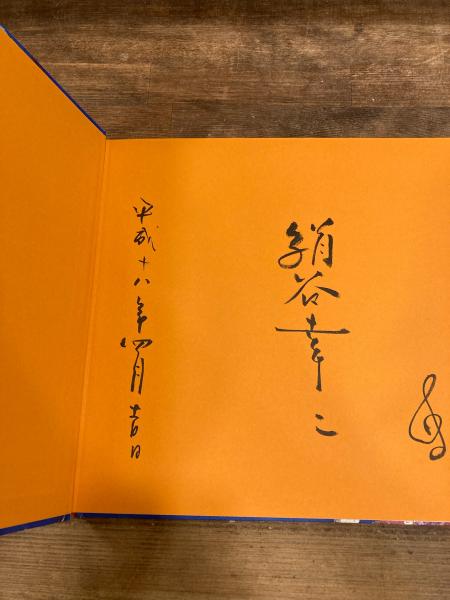 絹谷幸二
平成十八年四月吉日